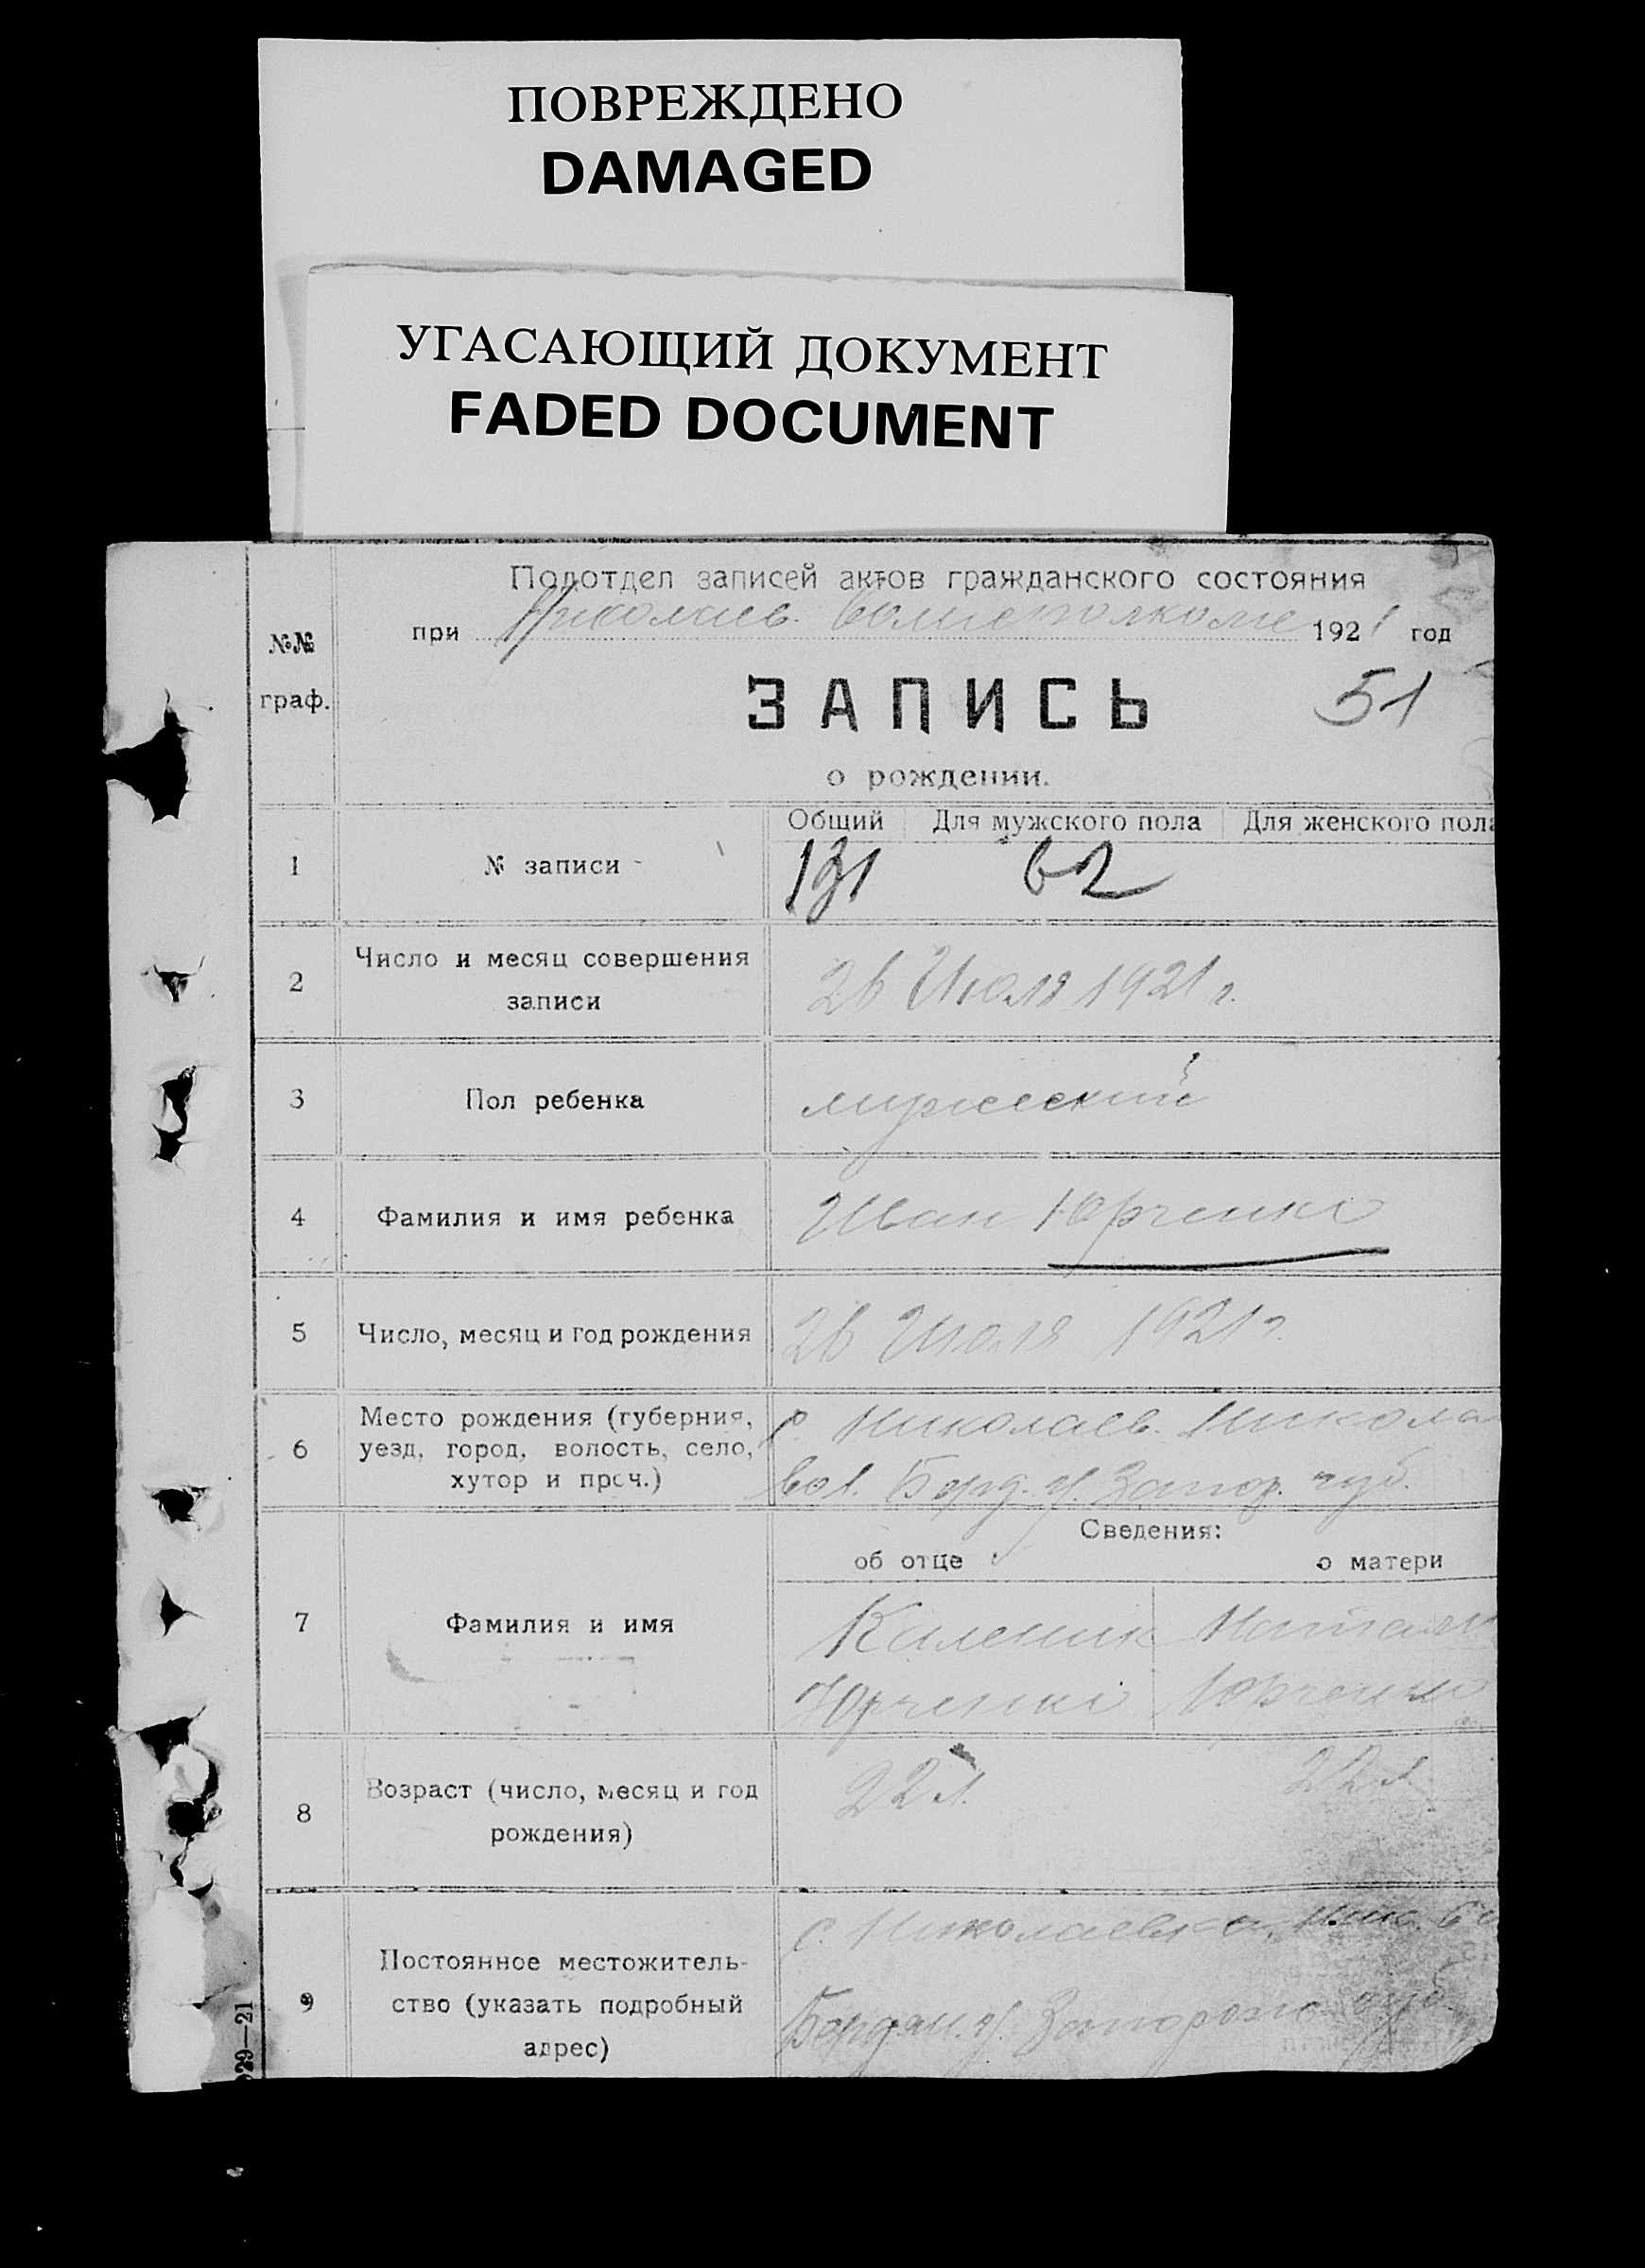 ПОВРЕЖДЕНО
DAMAGED
УГАСАЮЩИЙ ДОКУМЕНТ
FADED DOCUMENT
Подотдел записей актов гражданского состояния
при Николаев. Волисполкоме 1921 год
№№
граф.
ЗАПИСЬ
51
о рождении.
Общий Для мужского пола Для женского пола
1 № записи 131 62
2 Число и месяц совершения
записи
26 Июля 1921 г.
3 Пол ребенка мужеский
4 Фамилия и имя ребенка Иван Юрченко
5 Число, месяц и год рождения 26 Июля 1921 г.
6 Место рождения (губерния,
уезд, город, волость, село,
хутор и проч.)
с. Николаев. Никола
вол. Берд. у. Запор. губ.
Сведения:
об отце о матери
7 Фамилия и имя
Каленик Натали
Юрченко Юрченко
8 Возраст (число, месяц и год
рождения)
22 л. 22 л.
9 Постоянное местожитель-
ство (указать подробный
адрес)
с. Николаевка, Ник. во
Бердян. у. Запорож. губ.
029—21